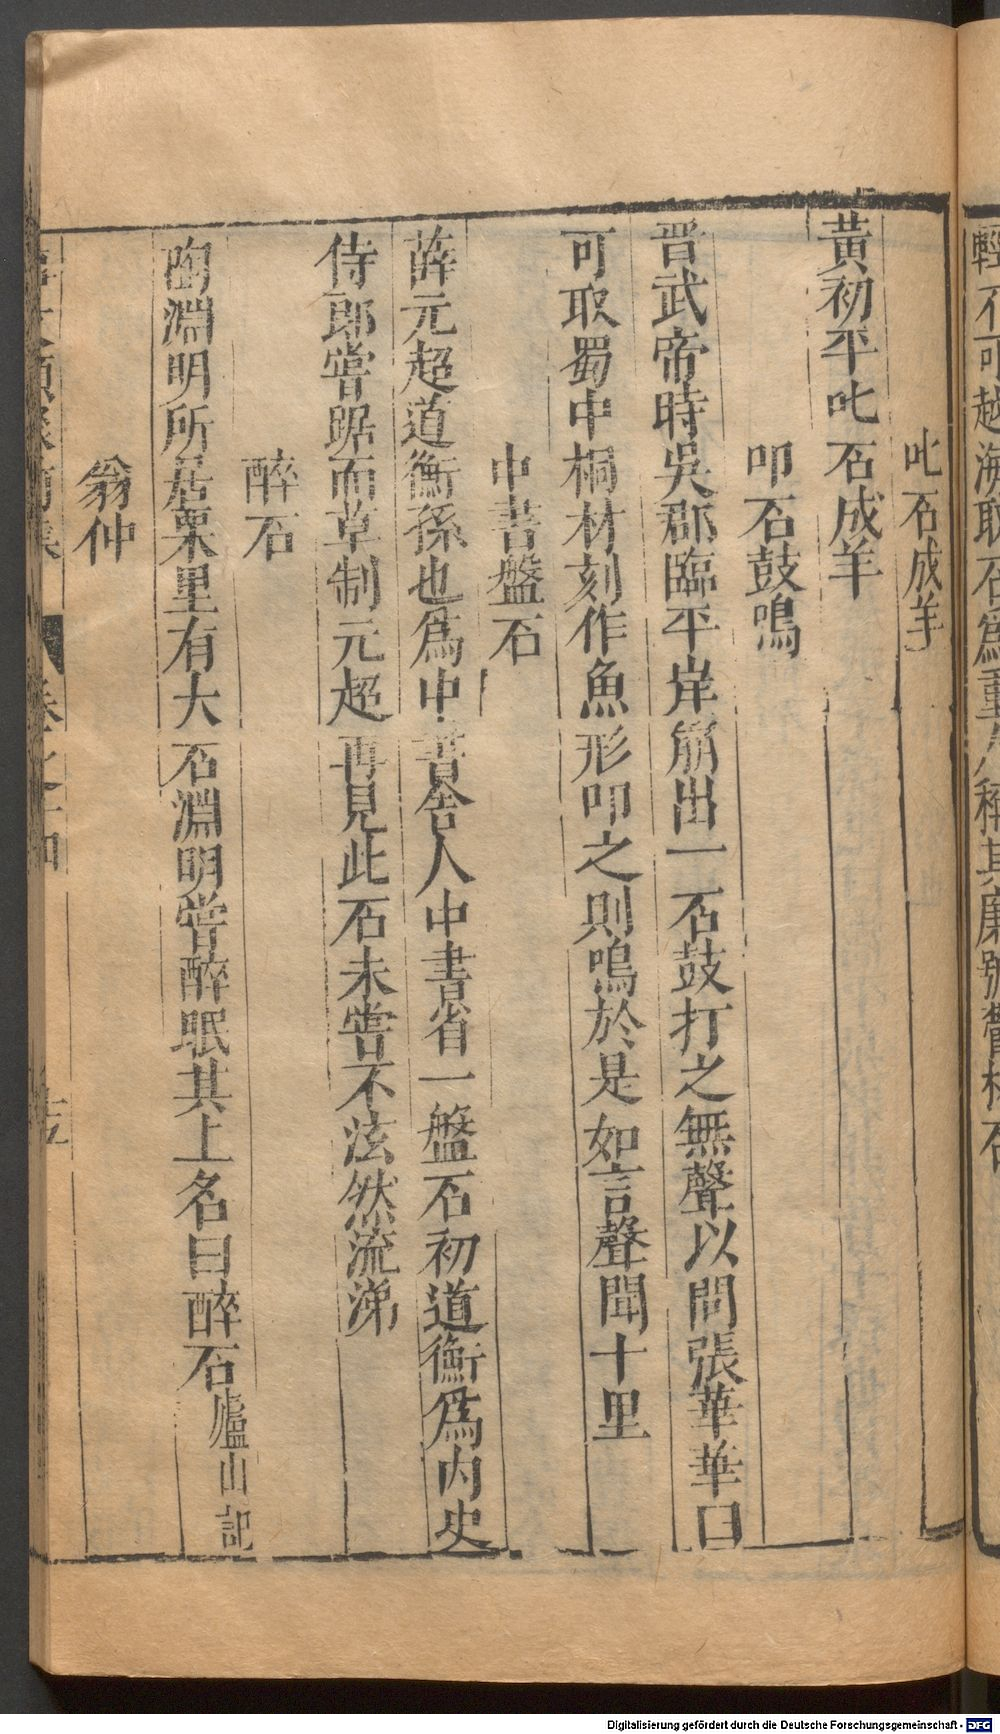 輕不可越海取石爲重人稱其廉號鬱林石
叱石成羊
黃初平叱石成羊
叩石鼓鳴
晋武帝時吳郡臨平岸崩出一石鼓打之無聲以問張華華曰
可取蜀中桐材刻作魚形叩之則鳴於是如言聲聞十里
中書盤石
薛元超道衡孫也爲中書舍人中書省一盤石初道衡爲內史
侍郎嘗踞而草制元超再見此石未嘗不泫然流涕
醉石
陶淵明所居栗里有大石淵明嘗醉眠其上名曰醉石廬山記
翁仲
卷之十四
Digitalisierung gefördert durch die Deutsche Forschungsgemeinschaft - DFG